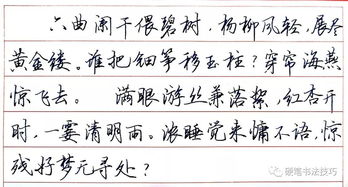 六曲阑干偎碧树，杨柳风轻，展尽
黄金缕。谁把钿筝移玉柱？穿帘海燕
惊飞去。 满眼游丝兼落絮，红杏开
时，一霎清明雨。浓睡觉来慵不语，惊
残好梦无寻处？
硬笔书法技巧